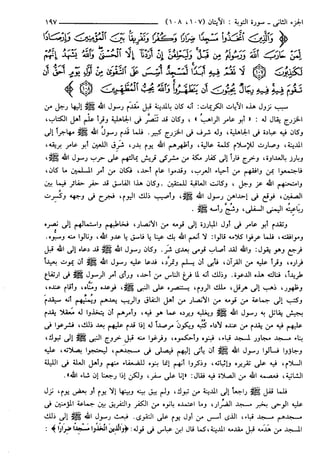 الجزء الثاني ـ سورة التوبة : الآيتان (١٠٧، ١٠٨) ١٩٧
وَالَّذِينَ اتَّخَذُوا مَسْجِدًا ضِرَارًا وَكُفْرًا وَتَفْرِيقًا بَيْنَ الْمُؤْمِنِينَ وَإِرْصَادًا
لِمَنْ حَارَبَ اللَّهَ وَرَسُولَهُ مِنْ قَبْلُ وَلَيَحْلِفُنَّ إِنْ أَرَدْنَا إِلَّا الْحُسْنَى وَاللَّهُ يَشْهَدُ إِنَّهُمْ
لَكَاذِبُونَ لَا تَقُمْ فِيهِ أَبَدًا لَمَسْجِدٌ أُسِّسَ عَلَى التَّقْوَى مِنْ أَوَّلِ يَوْمٍ أَحَقُّ أَنْ
تَقُومَ فِيهِ فِيهِ رِجَالٌ يُحِبُّونَ أَنْ يَتَطَهَّرُوا وَاللَّهُ يُحِبُّ الْمُطَّهِّرِينَ
سبب نزول هذه الآيات الكريمات: أنه كان بالمدينة قبل مَقدَم رسول الله ﷺ إليها رجل من
الخزرج يقال له : «أبو عامر الراهب»، وكان قد تَنَصَّر في الجاهلية وقرأ علم أهل الكتاب،
وكان فيه عبادة في الجاهلية، وله شرف في الخزرج كبير. فلما قَدم رسولُ الله ﷺ مهاجرًا إلى
المدينة، واجتمع المسلمون عليه، وصارت للإسلام كلمة عالية، وأظهرهم الله يوم بدر، شَرِق اللعين أبو عامر بريقه،
وبارز بالعداوة، وخرج فارًا إلى كفار مكة من مشركي قريش يمالئهم على حرب رسول الله ﷺ،
فاجتمعوا بمن وافقهم من أحياء العرب، وقدموا عام أحد، فكان من أمر المسلمين ما كان،
وامتحنهم الله عز وجل ، وكانت العاقبة للمتقين. وكان هذا الفاسق قد حفر حفائر فيما بين
الصفين، فوقع في إحداهن رسولُ الله ﷺ، وأصيب ذلك اليوم، فجرح في وجهه وكُسِرت
رَبَاعِيَتُه اليمنى السفلى، وشُجَّ رأسه ﷺ.
وتقدم أبو عامر في أول المبارزة إلى قومه من الأنصار، فخاطبهم واستمالهم إلى نصره
وموافقته، فلما عرفوا كلامه قالوا: لا أنعم الله بك عينا يا فاسق يا عدو الله، ونالوا منه وسبُّوه.
فرجع وهو يقول: والله لقد أصاب قومي بعدي شَر. وكان رسول الله ﷺ قد دعاه إلى الله قبل
فراره، وقرأ عليه من القرآن، فأبى أن يسلم وتمرَّد، فدعا عليه رسول الله ﷺ أن يموت بعيدًا
طريدًا، فنالته هذه الدعوة. وذلك أنه لما فرغ الناس من أحد، ورأى أمر الرسول ﷺ في ارتفاع
وظهور، ذهب إلى هرقل، ملك الروم، يستنصره على النبي ﷺ، فوعده ومَنَّاه، وأقام عنده،
وكتب إلى جماعة من قومه من الأنصار من أهل النفاق والريب يعدهم ويُمَنِّيهم أنه سيقدمُ
بجيش يقاتل به رسول الله ﷺ ويغلبه ويرده عما هو فيه، وأمرهم أن يتخذوا له مَعقلا يقدم
عليهم فيه من يقدم من عنده لأداء كُتُبه ويكونَ مرصدًا له إذا قدم عليهم بعد ذلك، فشرعوا في
بناء مسجد مجاور لمسجد قباء، فبنوه وأحكموه، وفرغوا منه قبل خروج النبي ﷺ إلى تبوك،
وجاؤوا فسألوا رسول الله ﷺ أن يأتي إليهم فيصلي في مسجدهم، ليحتجوا بصلاته، عليه
السلام، فيه على تقريره وإثباته، وذكروا أنهم إنما بنوه للضعفاء منهم وأهل العلة في الليلة
الشاتية، فعصمه الله من الصلاة فيه فقال: «إنا على سفر، ولكن إذا رجعنا إن شاء الله».
فلما قفل ﷺ راجعًا إلى المدينة من تبوك، ولم يبق بينه وبينها إلا يوم أو بعض يوم، نزل
عليه الوحي بخبر مسجد الضِّرار، وما اعتمده بانوه من الكفر والتفريق بين جماعة المؤمنين في
مسجدهم مسجد قباء، الذي أسس من أول يوم على التقوى. فبعث رسول الله ﷺ إلى ذلك
المسجد من هَدَمه قبل مقدمه المدينة، كما قال ابن عباس في قوله: ﴿وَالَّذِينَ اتَّخَذُوا مَسْجِدًا ضِرَارًا﴾ :